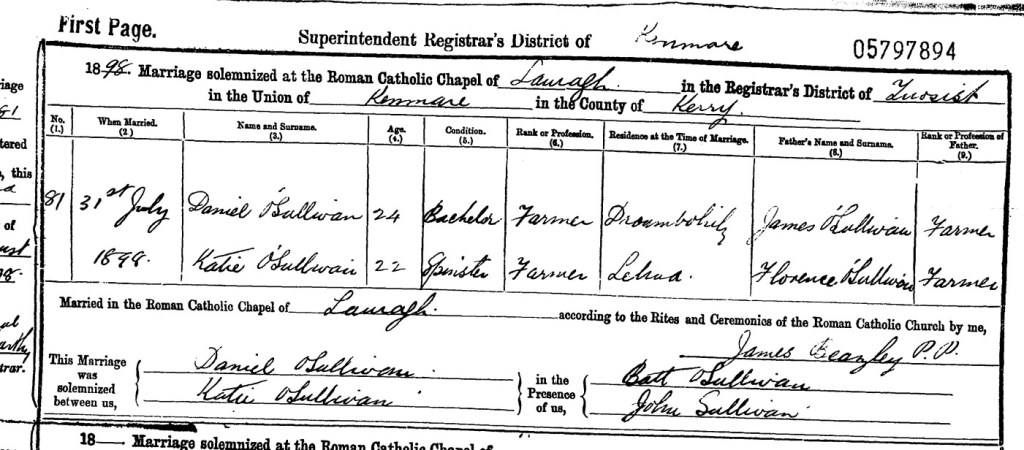 First Page.
Superintendent Registrar's District of Kenmare
05797894
1898. Marriage solemnized at the Roman Catholic Chapel of Lauragh in the Registrar's District of Tuosist
in the Union of Kenmare in the County of Kerry
No. (1.) When Married. (2.) Name and Surname. (3.) Age. (4.) Condition. (5.) Rank or Profession. (6.) Residence at the Time of Marriage. (7.) Father's Name and Surname. (8.) Rank or Profession of Father. (9.)
81 31st July Daniel O'Sullivan 24 Bachelor Farmer Droumbohily James O'Sullivan Farmer
1898. Katie O'Sullivan 22 Spinster Farmer Lehud. Florence O'Sullivan Farmer
Married in the Roman Catholic Chapel of Lauragh. according to the Rites and Ceremonies of the Roman Catholic Church by me,
James Beazley P.P.
This Marriage was solemnized between us,
Daniel O'Sullivan
Katie O'Sullivan
in the Presence of us,
Batt O'Sullivan
John Sullivan
18 Marriage solemnized at the Roman Catholic Chapel of